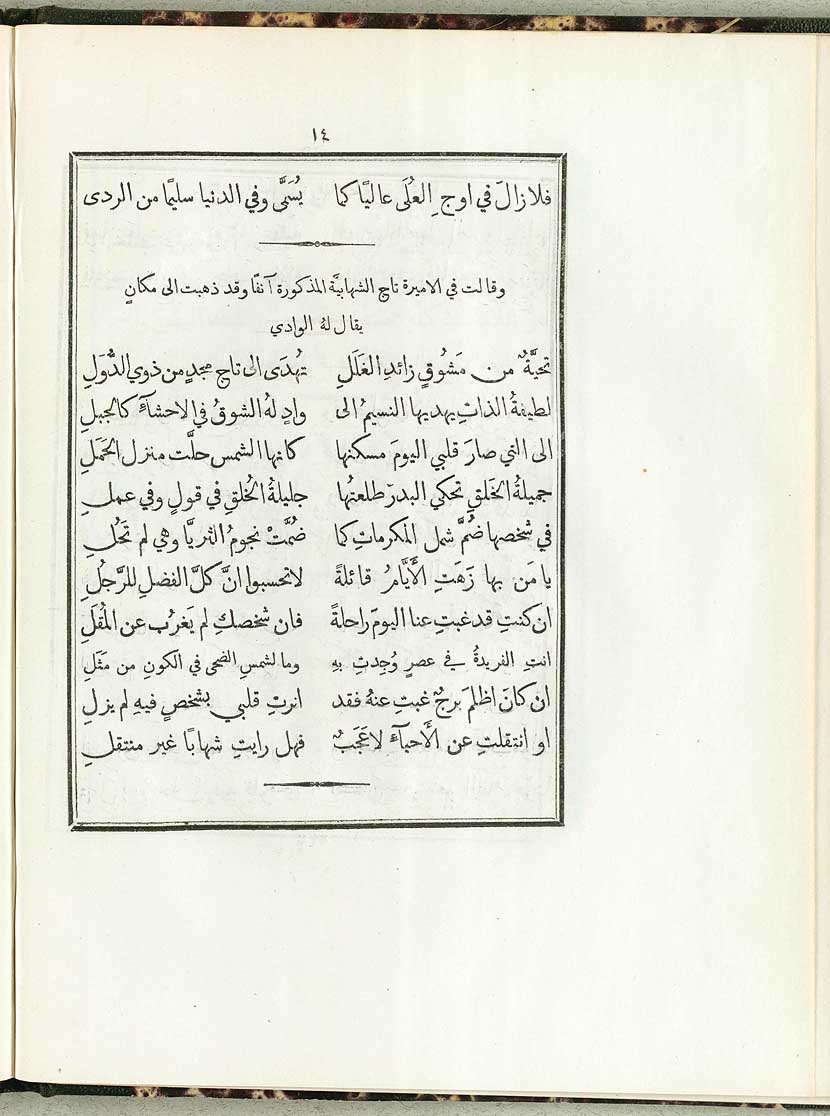 ١٤
فلا زالَ في اوجِ العُلَى عاليًا كما يُسَمَّى وفي الدنيا سليمًا من الردى
وقالت في الاميرة تاج الشهابيَّة المذكورة آنفًا وقد ذهبت الى مكانٍ
يقال لهُ الوادي
تحيَّةٌ من مَشُوقٍ زائدِ الغَلَلِ تُهدَى الى تاج مجدٍ من ذوي الدُّوَلِ
لطيفةُ الذاتِ يهديها النسيمُ الى وادٍ لهُ الشوقُ في الاحشآءِ كالجبلِ
الى التي صارَ قلبي اليومَ مسكنها كانها الشمس حلَّت منزل الحَمَلِ
جميلةُ الخَلقِ تحكي البدرَ طلعتُها جليلةُ الخُلقِ في قولٍ وفي عملِ
في شخصها ضُمَّ شمل المكرماتِ كما ضُمَّتْ نجومُ الثريَّا وهي لم تَحُلِ
يا مَن بها زَهَتِ الأَيَّامُ قائلةً لا تحسبوا انَّ كلَّ الفضلِ للرَّجُلِ
ان كنتِ قد غبتِ عنا اليومَ راحلةً فان شخصكِ لم يَغرُب عن المُقَلِ
انتِ الفريدةُ في عصرٍ وُجِدتِ بهِ وما لشمسِ الضحى في الكونِ من مَثَلِ
ان كانَ اظلمَ برجٌ غبتِ عنهُ فقد انرتِ قلبي بشخصٍ فيهِ لم يزلِ
او انتقلتِ عن الأَحبآءِ لا عَجَبٌ فهل رايتِ شهابًا غير منتقلِ